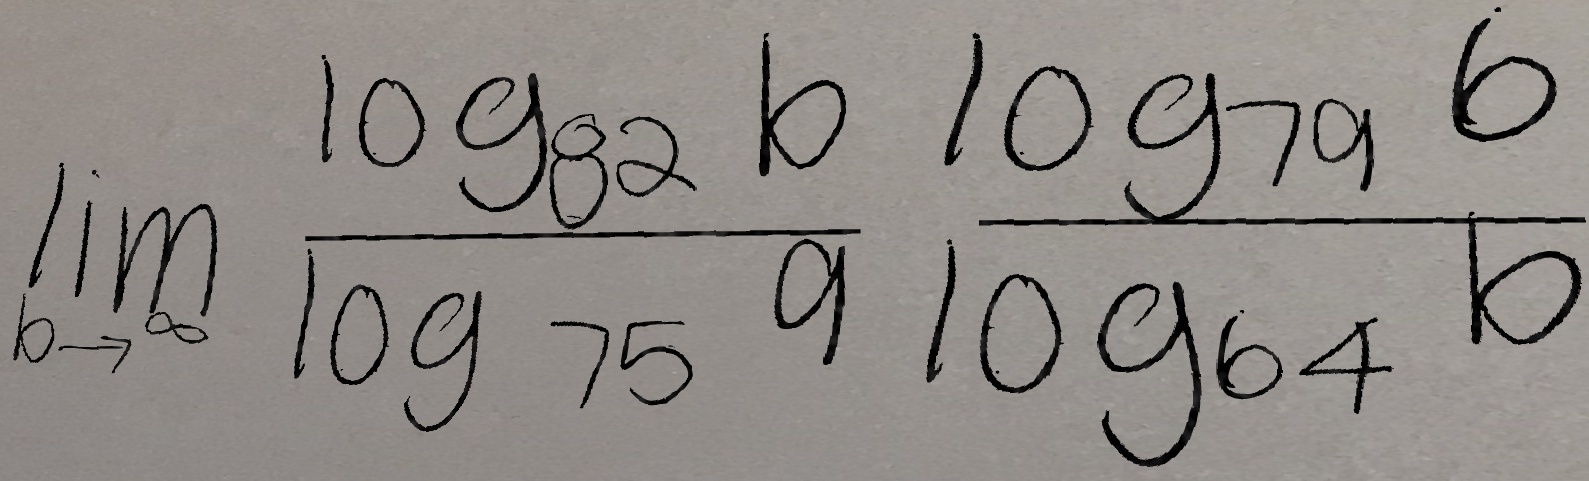 \lim_{b \to \infty} \frac{\log_{82} b}{\log_{75} 9} \frac{\log_{79} 6}{\log_{64} b}